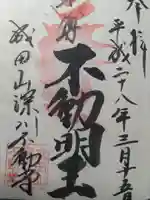 奉拝
平成二十八年三月十五日
不動明王
成田山深川不動尊